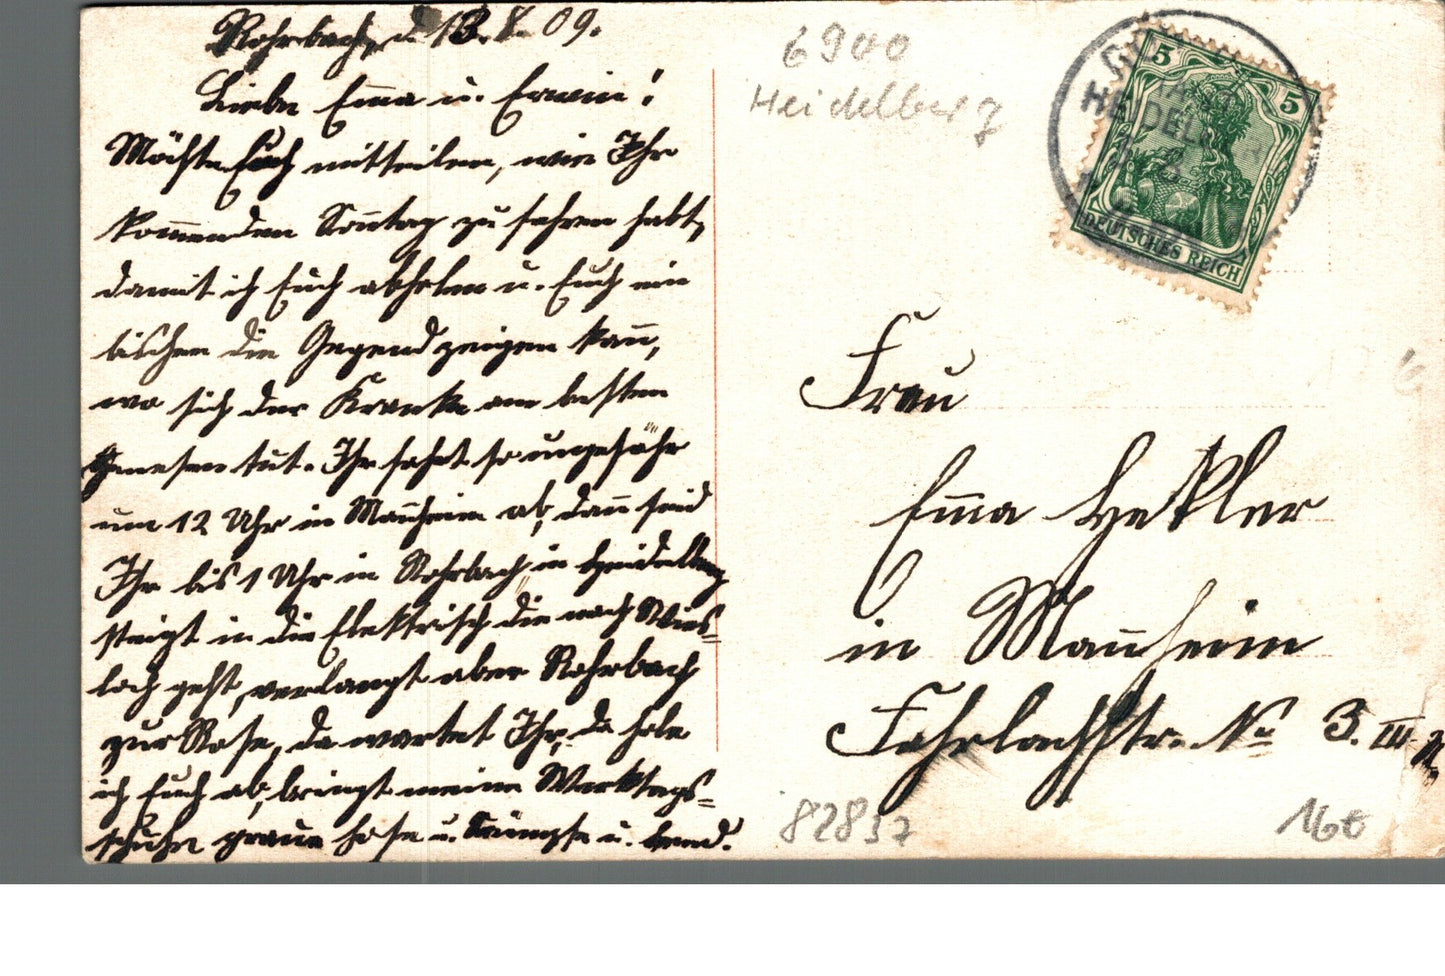 Rohrbach, d. 13.8.09.
Liebe Emma u. Erwin!
Möchte Euch mitteilen, wie Ihr
kommenden Sonntag zu fahren habt,
damit ich Euch abholen u. Euch ein
bischen die Gegend zeigen kann,
wo sich der Kranke am besten
genesen tut. Ihr fahrt so ungefähr
um 12 Uhr in Mannheim ab, dann seid
Ihr bis 1 Uhr in Rohrbach, in Heidelberg
steigt in die Elektrisch die nach Wies=
loch geht, verlangt aber Rohrbach
zur Rose, da wartet Ihr, da hole
ich Euch ab, bringt meine Werktags=
schuhe graue Hose u. Strümpfe u. Hemd.
6900
Heidelberg
5 5
HEIDELB
DEUTSCHES REICH
Frau
Emma Hekler
in Mannheim
Fahrlachstr. No 3. III.
82837
160